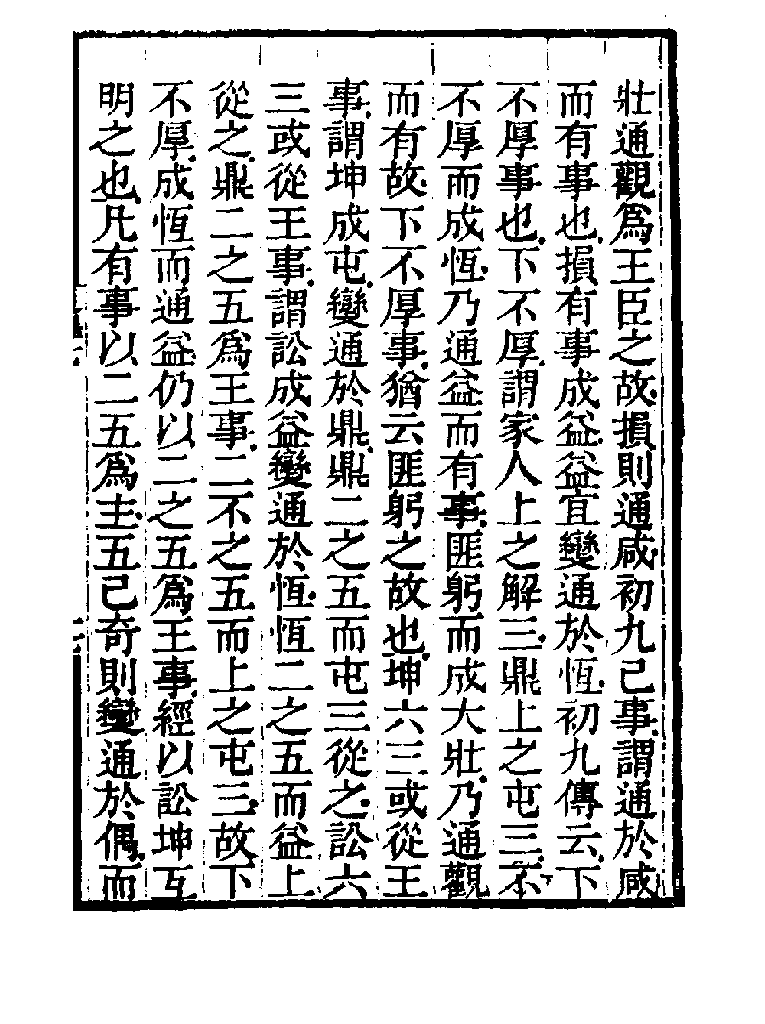 壯通觀爲王臣之故損則通咸初九已事謂通於咸
而有事也損有事成益益宜變通於恆初九傳云下
不厚事也下不厚謂家人上之解三鼎上之屯三不
不厚而成恆乃通益而有事匪躬而成大壯乃通觀
而有故下不厚事猶云匪躬之故也坤六三或從王
事謂坤成屯變通於鼎鼎二之五而屯三從之訟六
三或從王事謂訟成益變通於恆恆二之五而益上
從之鼎二之五爲王事二不之五而上之屯三故下
不厚成恆而通益仍以二之五爲王事經以訟坤互
明之也凡有事以二五爲主五已奇則變通於偶而